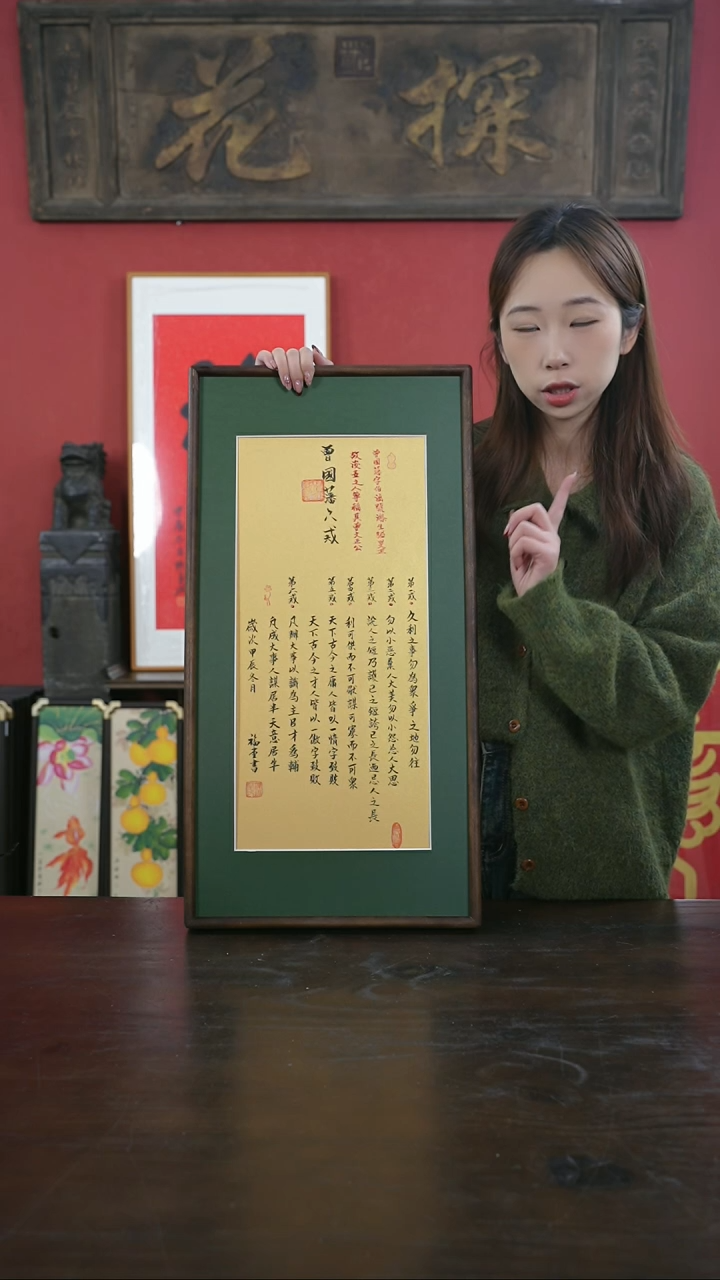 探花
曾國藩字伯涵號滌生
曾國藩六戒
第一戒 久利之事勿為眾爭之地勿往
第二戒 勿以小惡棄人大美勿以小怨忘人大恩
第三戒 說人之短乃護己之短誇己之長乃忌人之長
第四戒 利可 而不可獨謀可寡而不可眾
第五戒 天下古今之庸人皆以一惰字致敗
天下古今之才人皆以一傲字致敗
第六戒 凡辦大事以識為主以才為輔
凡成大事人謀居半天意居半
歲次甲辰冬月